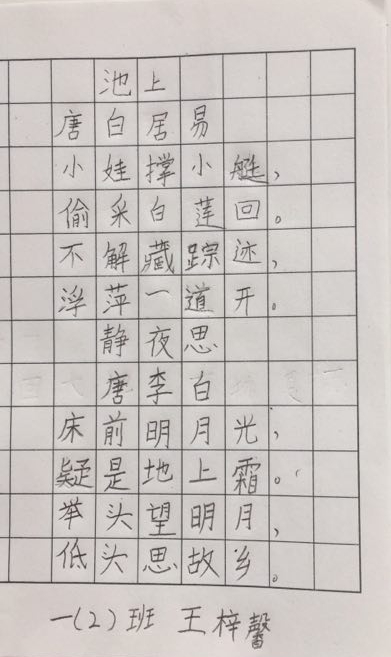 池上
唐白居易
小娃撑小艇,
偷采白莲回。
不解藏踪迹,
浮萍一道开。
静夜思
唐李白
床前明月光,
疑是地上霜。
举头望明月,
低头思故乡。
一(2)班 王梓馨